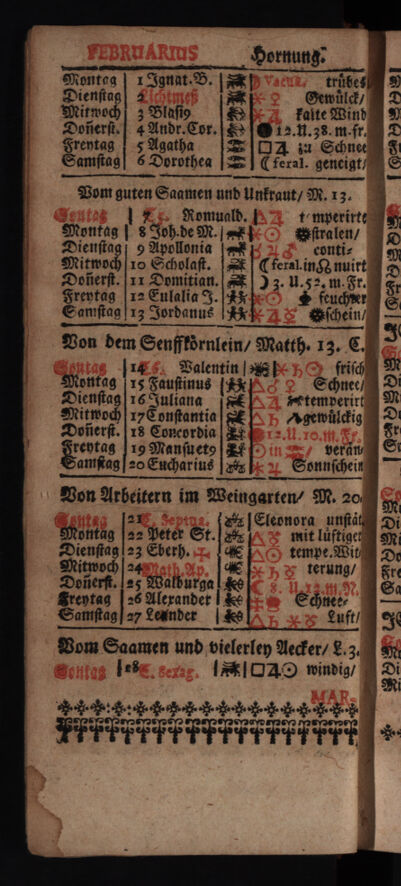 FEBRUARIUS Hornung.
Montag 1 Ignat. B. ☽ Vacua. trübes
Dienstag 2 Lichtmeß ⚹ ♀ Gewülck/
Mitwoch 3 Blasij ⚹ ♃ kalte Wind
Doñerst. 4 Andr. Cor. 12. U. 38. m. fr.
Freytag 5 Agatha □ ♃ zu Schnee
Samstag 6 Dorothea ☾ feral. geneigt/
Vom guten Saamen und Unkraut/ M. 13.
Sontag 7 Romuald. △ ♃ temperirte
Montag 8 Joh. de M. ⚹ ☉ stralen/
Dienstag 9 Apollonia ☿ ♃ ♂ conti-
Mitwoch 10 Scholast. ☾ feral. in ☊ nuirt
Doñerst. 11 Domitian. ☽ 3. U. 52. m. Fr.
Freytag 12 Eulalia J. ⚹ ☉ feuchter
Samstag 13 Jordanus ⚹ ♃ ☿ schein/
Von dem Senffkörnlein/ Matth. 13. C.
Sontag 14 Valentin ⚹ ♄ ☉ frisch
Montag 15 Faustinus △ ♂ ♀ Schnee/
Dienstag 16 Juliana △ ♃ temperirt
Mitwoch 17 Constantia △ ♄ gewülckig
Doñerst. 18 Concordia 12. U. 10. m. Fr.
Freytag 19 Mansuetq ☉ in ♓ verän/
Samstag 20 Eucharius ⚹ ♃ Sonnschein
Von Arbeitern im Weingarten/ M. 20
Sontag 21 C. Septua. Eleonora unstät
Montag 22 Peter St. △ ☿ mit lüftiger
Dienstag 23 Eberh. △ ☉ tempe. Wit/
Mitwoch 24 Math. Ap. ⚹ ♄ ☿ terung/
Doñerst. 25 Walburga ☾ 8. U. 12. m. N.
Freytag 26 Alexander Schnee-
Samstag 27 Leander △ ♄ ⚹ ☿ Luft/
Vom Saamen und vielerley Aecker/ L. 3.
Sontag 28 C. Sexag. □ ♃ ☉ windig/
MAR-